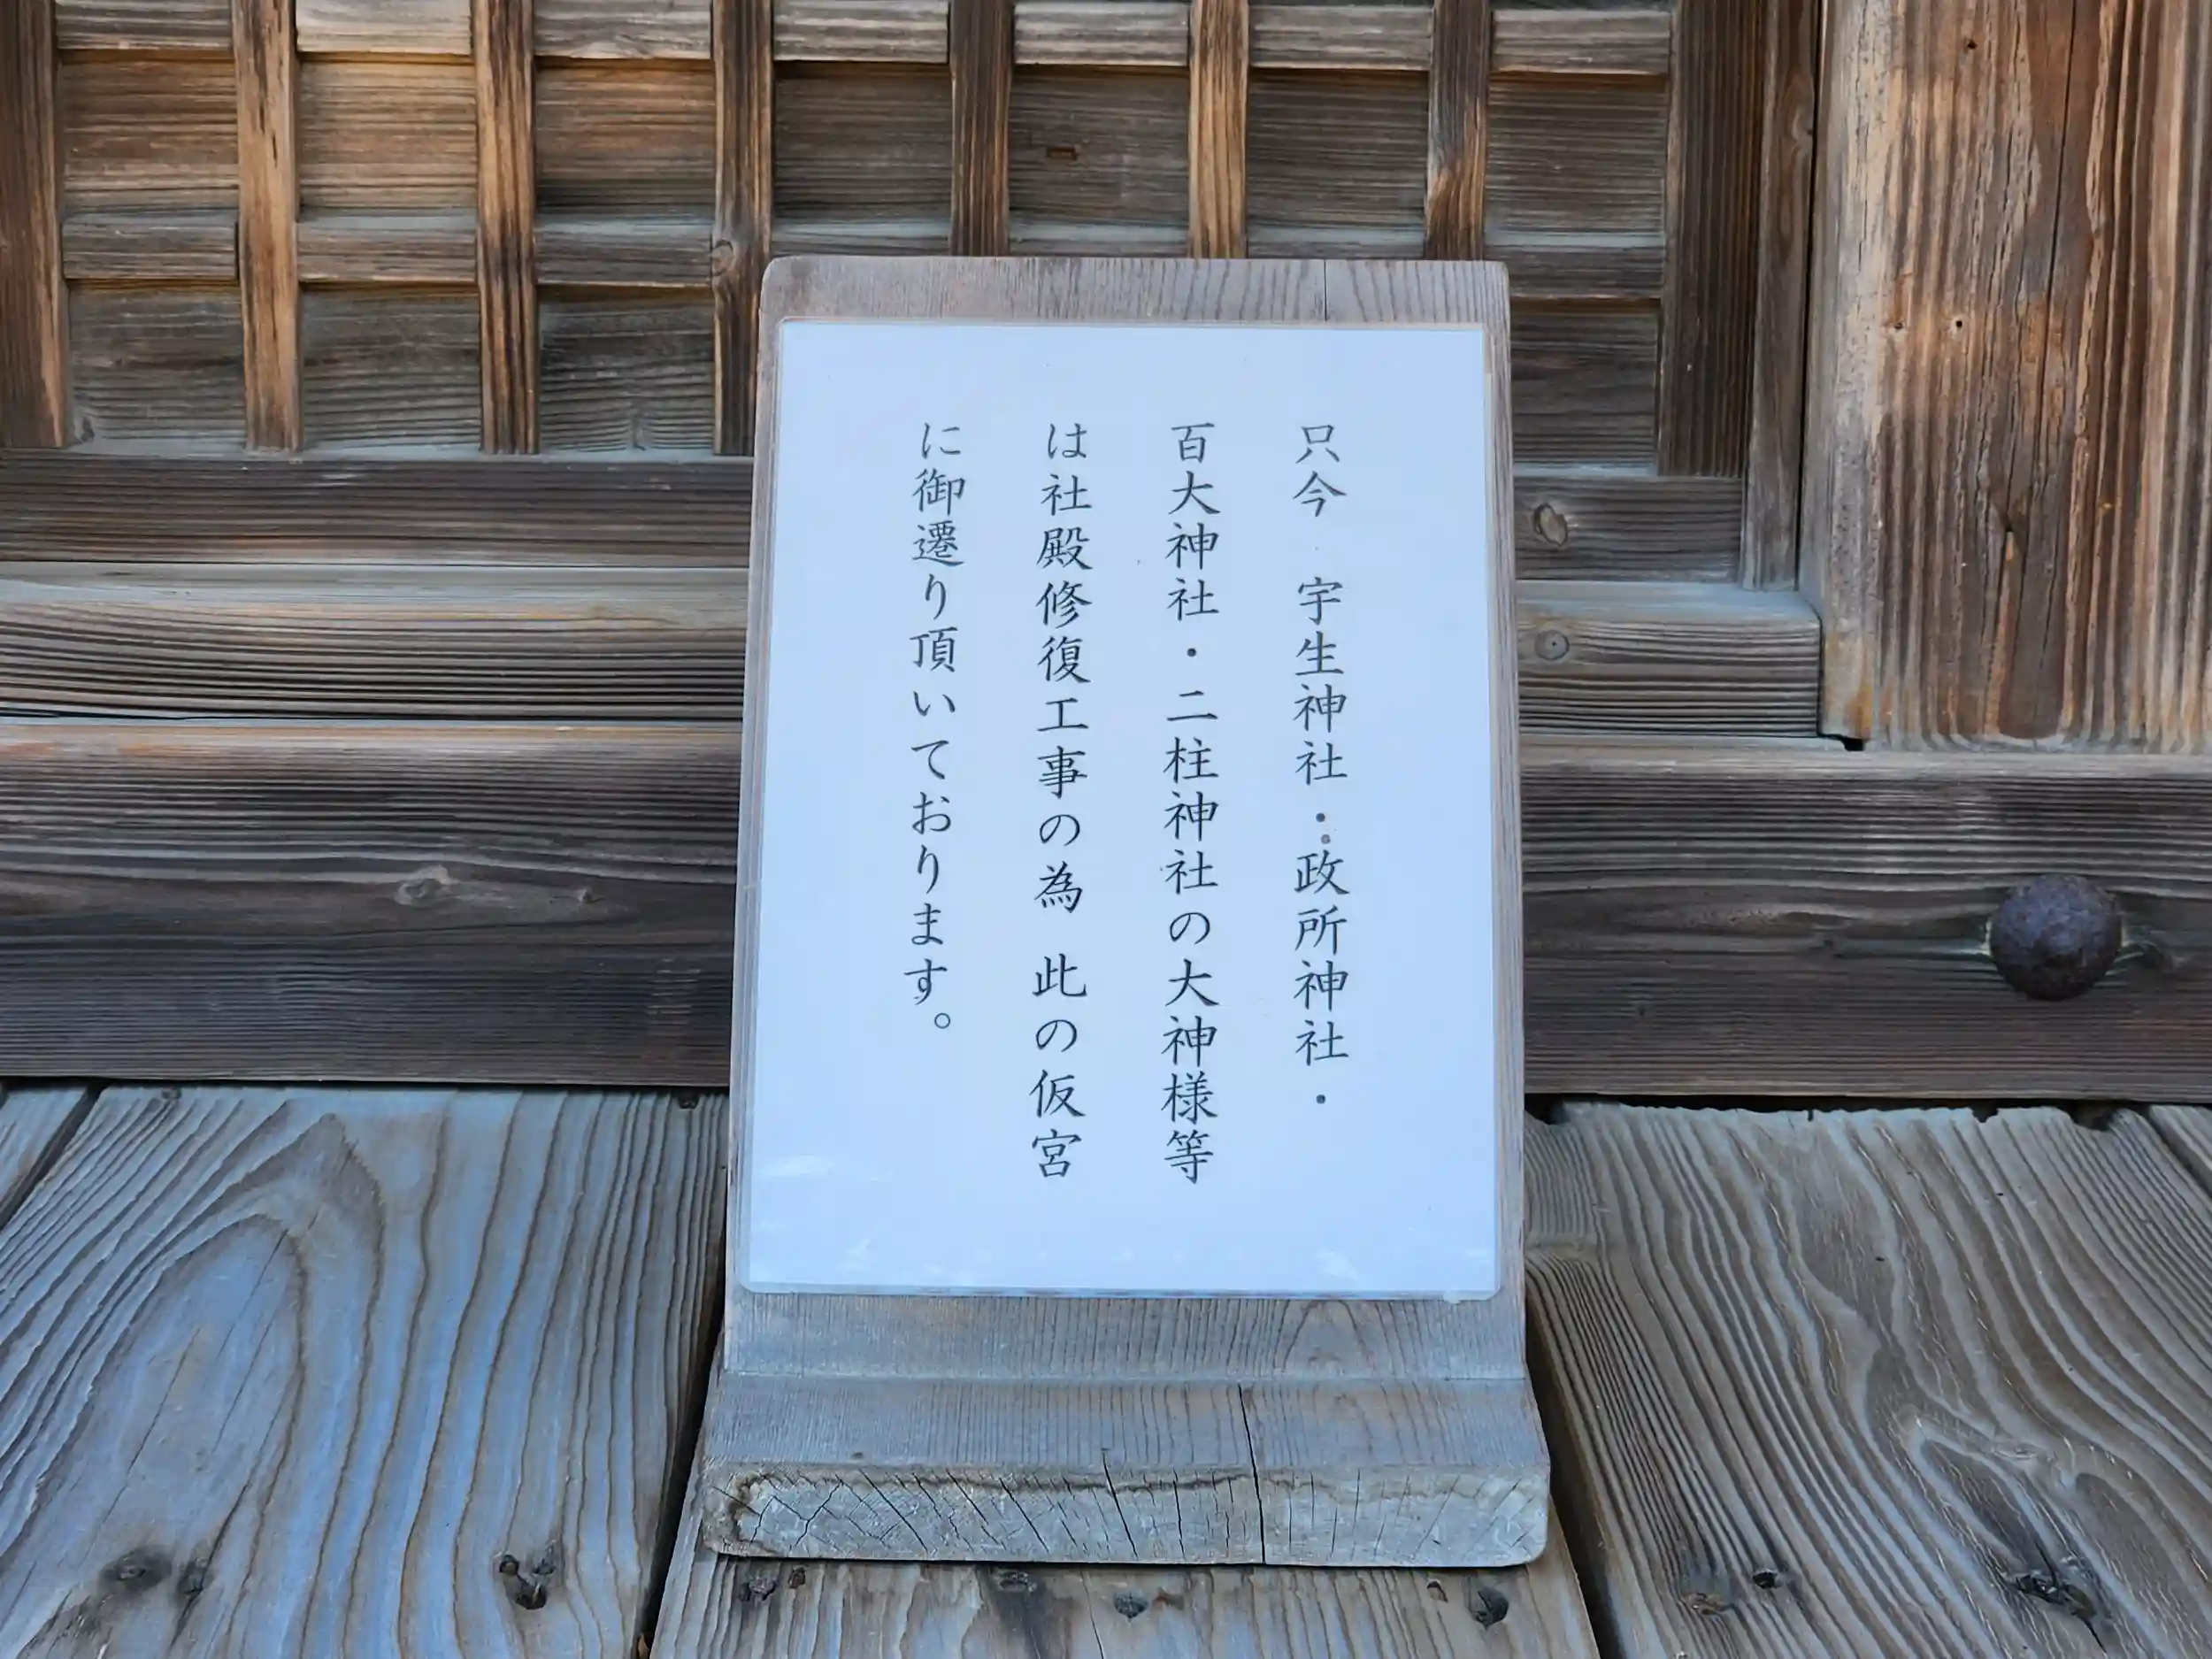 只今　宇生神社・政所神社・
百大神社・二柱神社の大神様等
は社殿修復工事の為 此の仮宮
に御遷り頂いております。